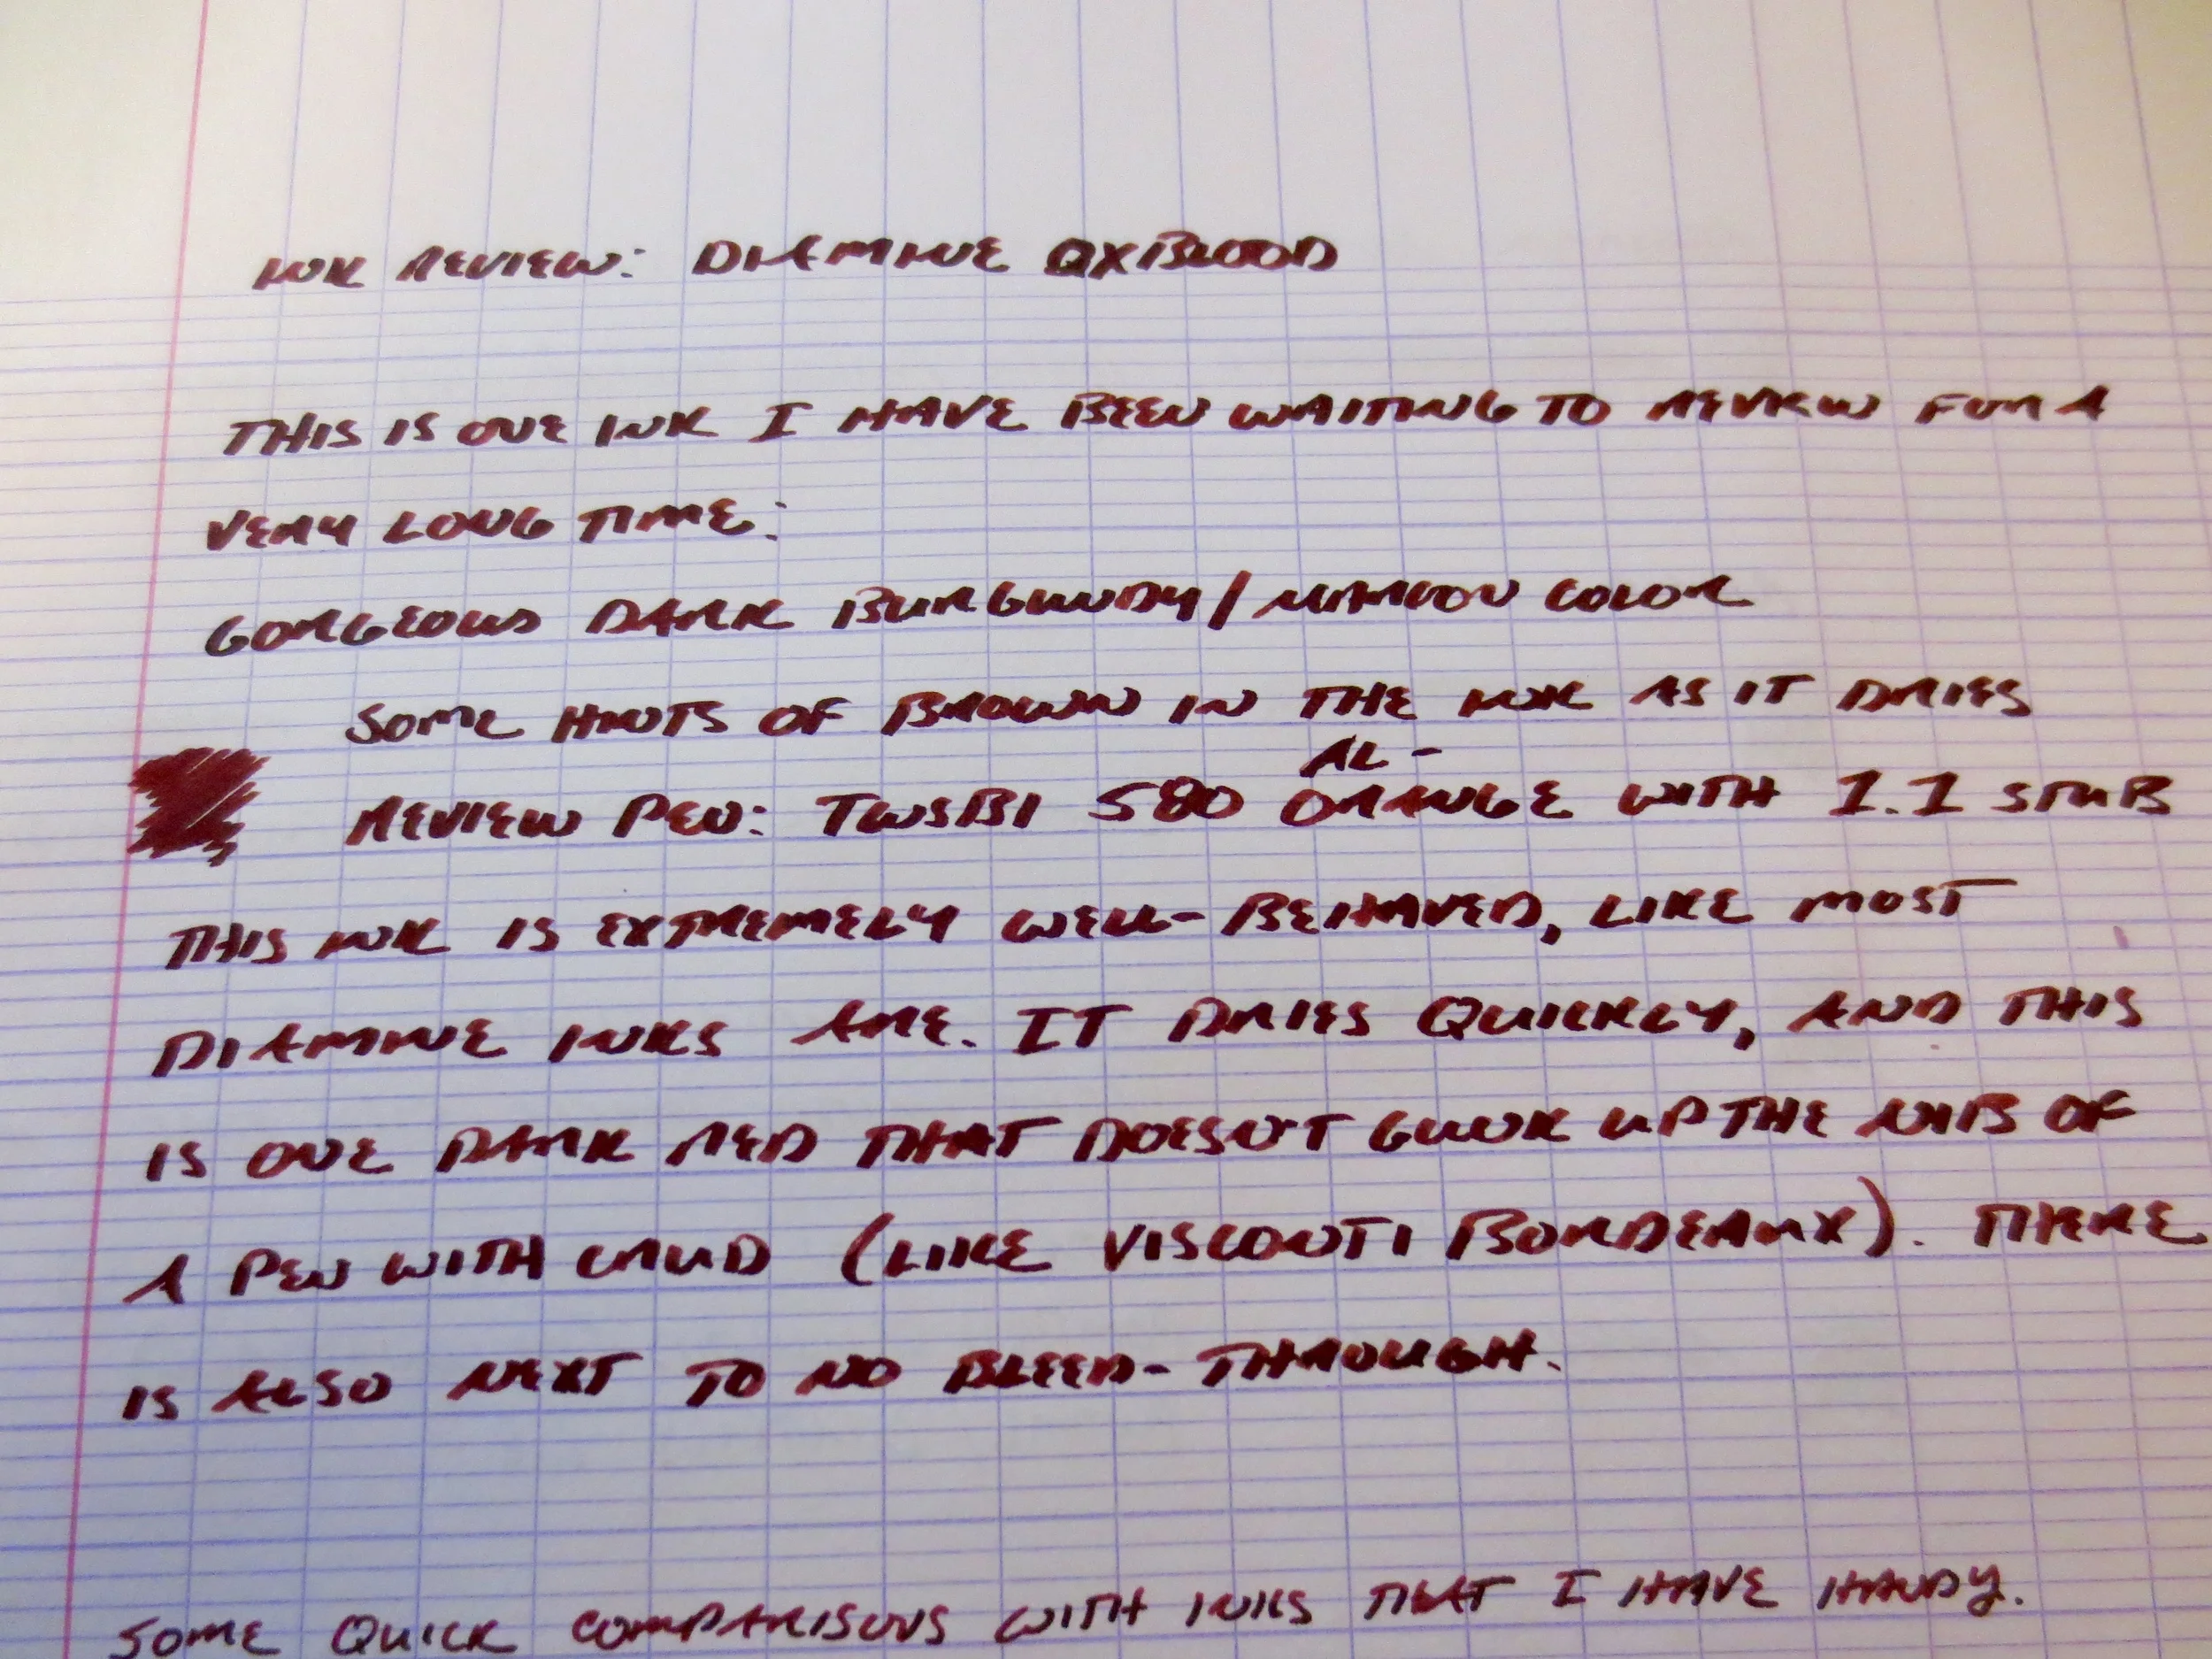 INK REVIEW: DIAMINE OXBLOOD
THIS IS ONE INK I HAVE BEEN WAITING TO REVIEW FOR A
VERY LONG TIME:
GORGEOUS DARK BURGUNDY/MAROON COLOR
SOME HINTS OF BROWN IN THE INK AS IT DRIES
AL-
REVIEW PEN: TWSBI 580 ORANGE WITH 1.1 STUB
THIS INK IS EXTREMELY WELL-BEHAVED, LIKE MOST
DIAMINE INKS ARE. IT DRIES QUICKLY, AND THIS
IS ONE DARK RED THAT DOESN'T GUNK UP THE NIB OF
A PEN WITH CRUD (LIKE VISCONTI BORDEAUX). THERE
IS ALSO NEXT TO NO BLEED-THROUGH.
SOME QUICK COMPARISONS WITH INKS THAT I HAVE HANDY.